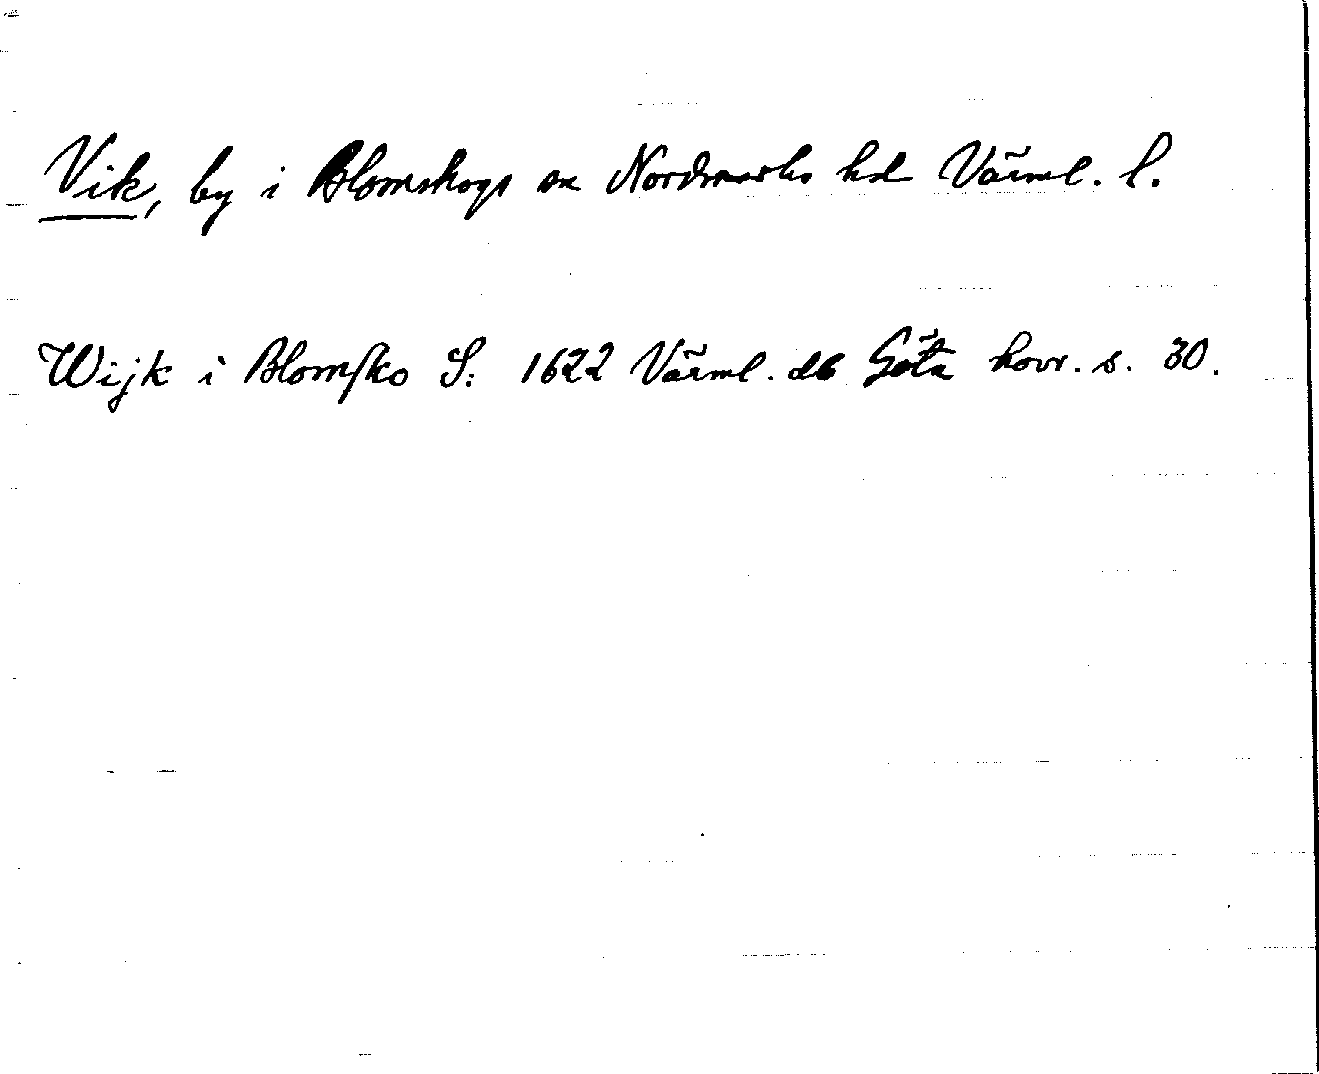 Vik, by i Blomskogs sn Nordmarks hd Värml. l.
Wijk i Blomſko S: 1622 Värml. db Göta hovr. s. 30.